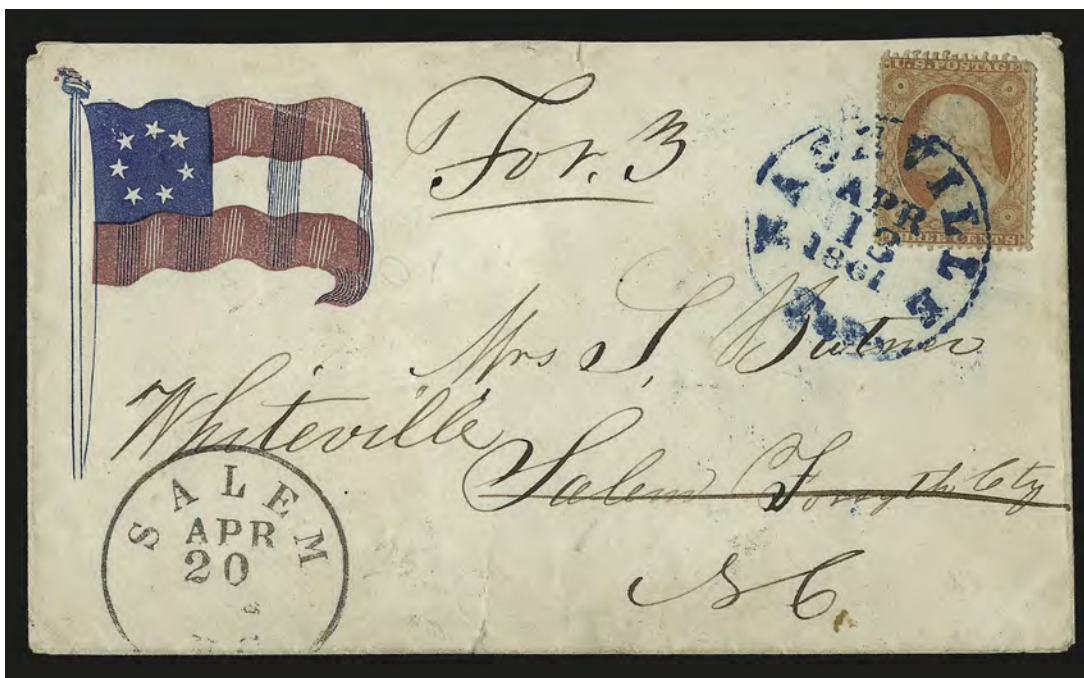 For. 3
U.S. POSTAGE
THREE CENTS
NASHVILLE
APR
13
1861
Ten.
Mrs S. Butner
Whiteville
Salem Forsyth Cty
N C
SALEM
APR
20